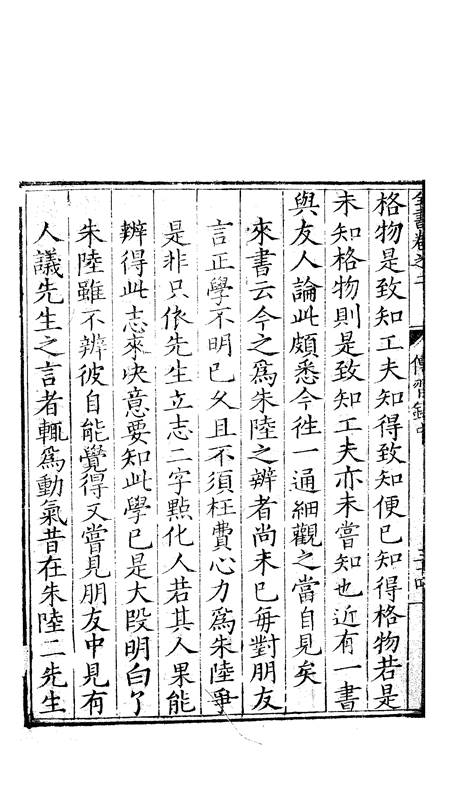 全書卷之二 傳習錄中
格物是致知工夫知得致知便已知得格物若是
未知格物則是致知工夫亦未嘗知也近有一書
與友人論此頗悉今徃一通細觀之當自見矣
來書云今之爲朱陸之辨者尚未已每對朋友
言正學不明已乆且不須枉費心力爲朱陸爭
是非只依先生立志二字㸃化人若其人果能
辨得此志來决意要知此學已是大段明白了
朱陸雖不辨彼自能覺得又嘗見朋友中見有
人議先生之言者輒爲動氣昔在朱陸二先生